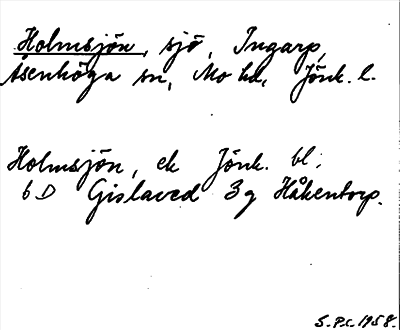 Holmsjön, sjö, Ingarp,
Åsenhöga sn, Mo hd, Jönk. l.
Holmsjön, ek Jönk. bl.
6D Gislaved 3g Håkentorp.
S.P.c. 1958.